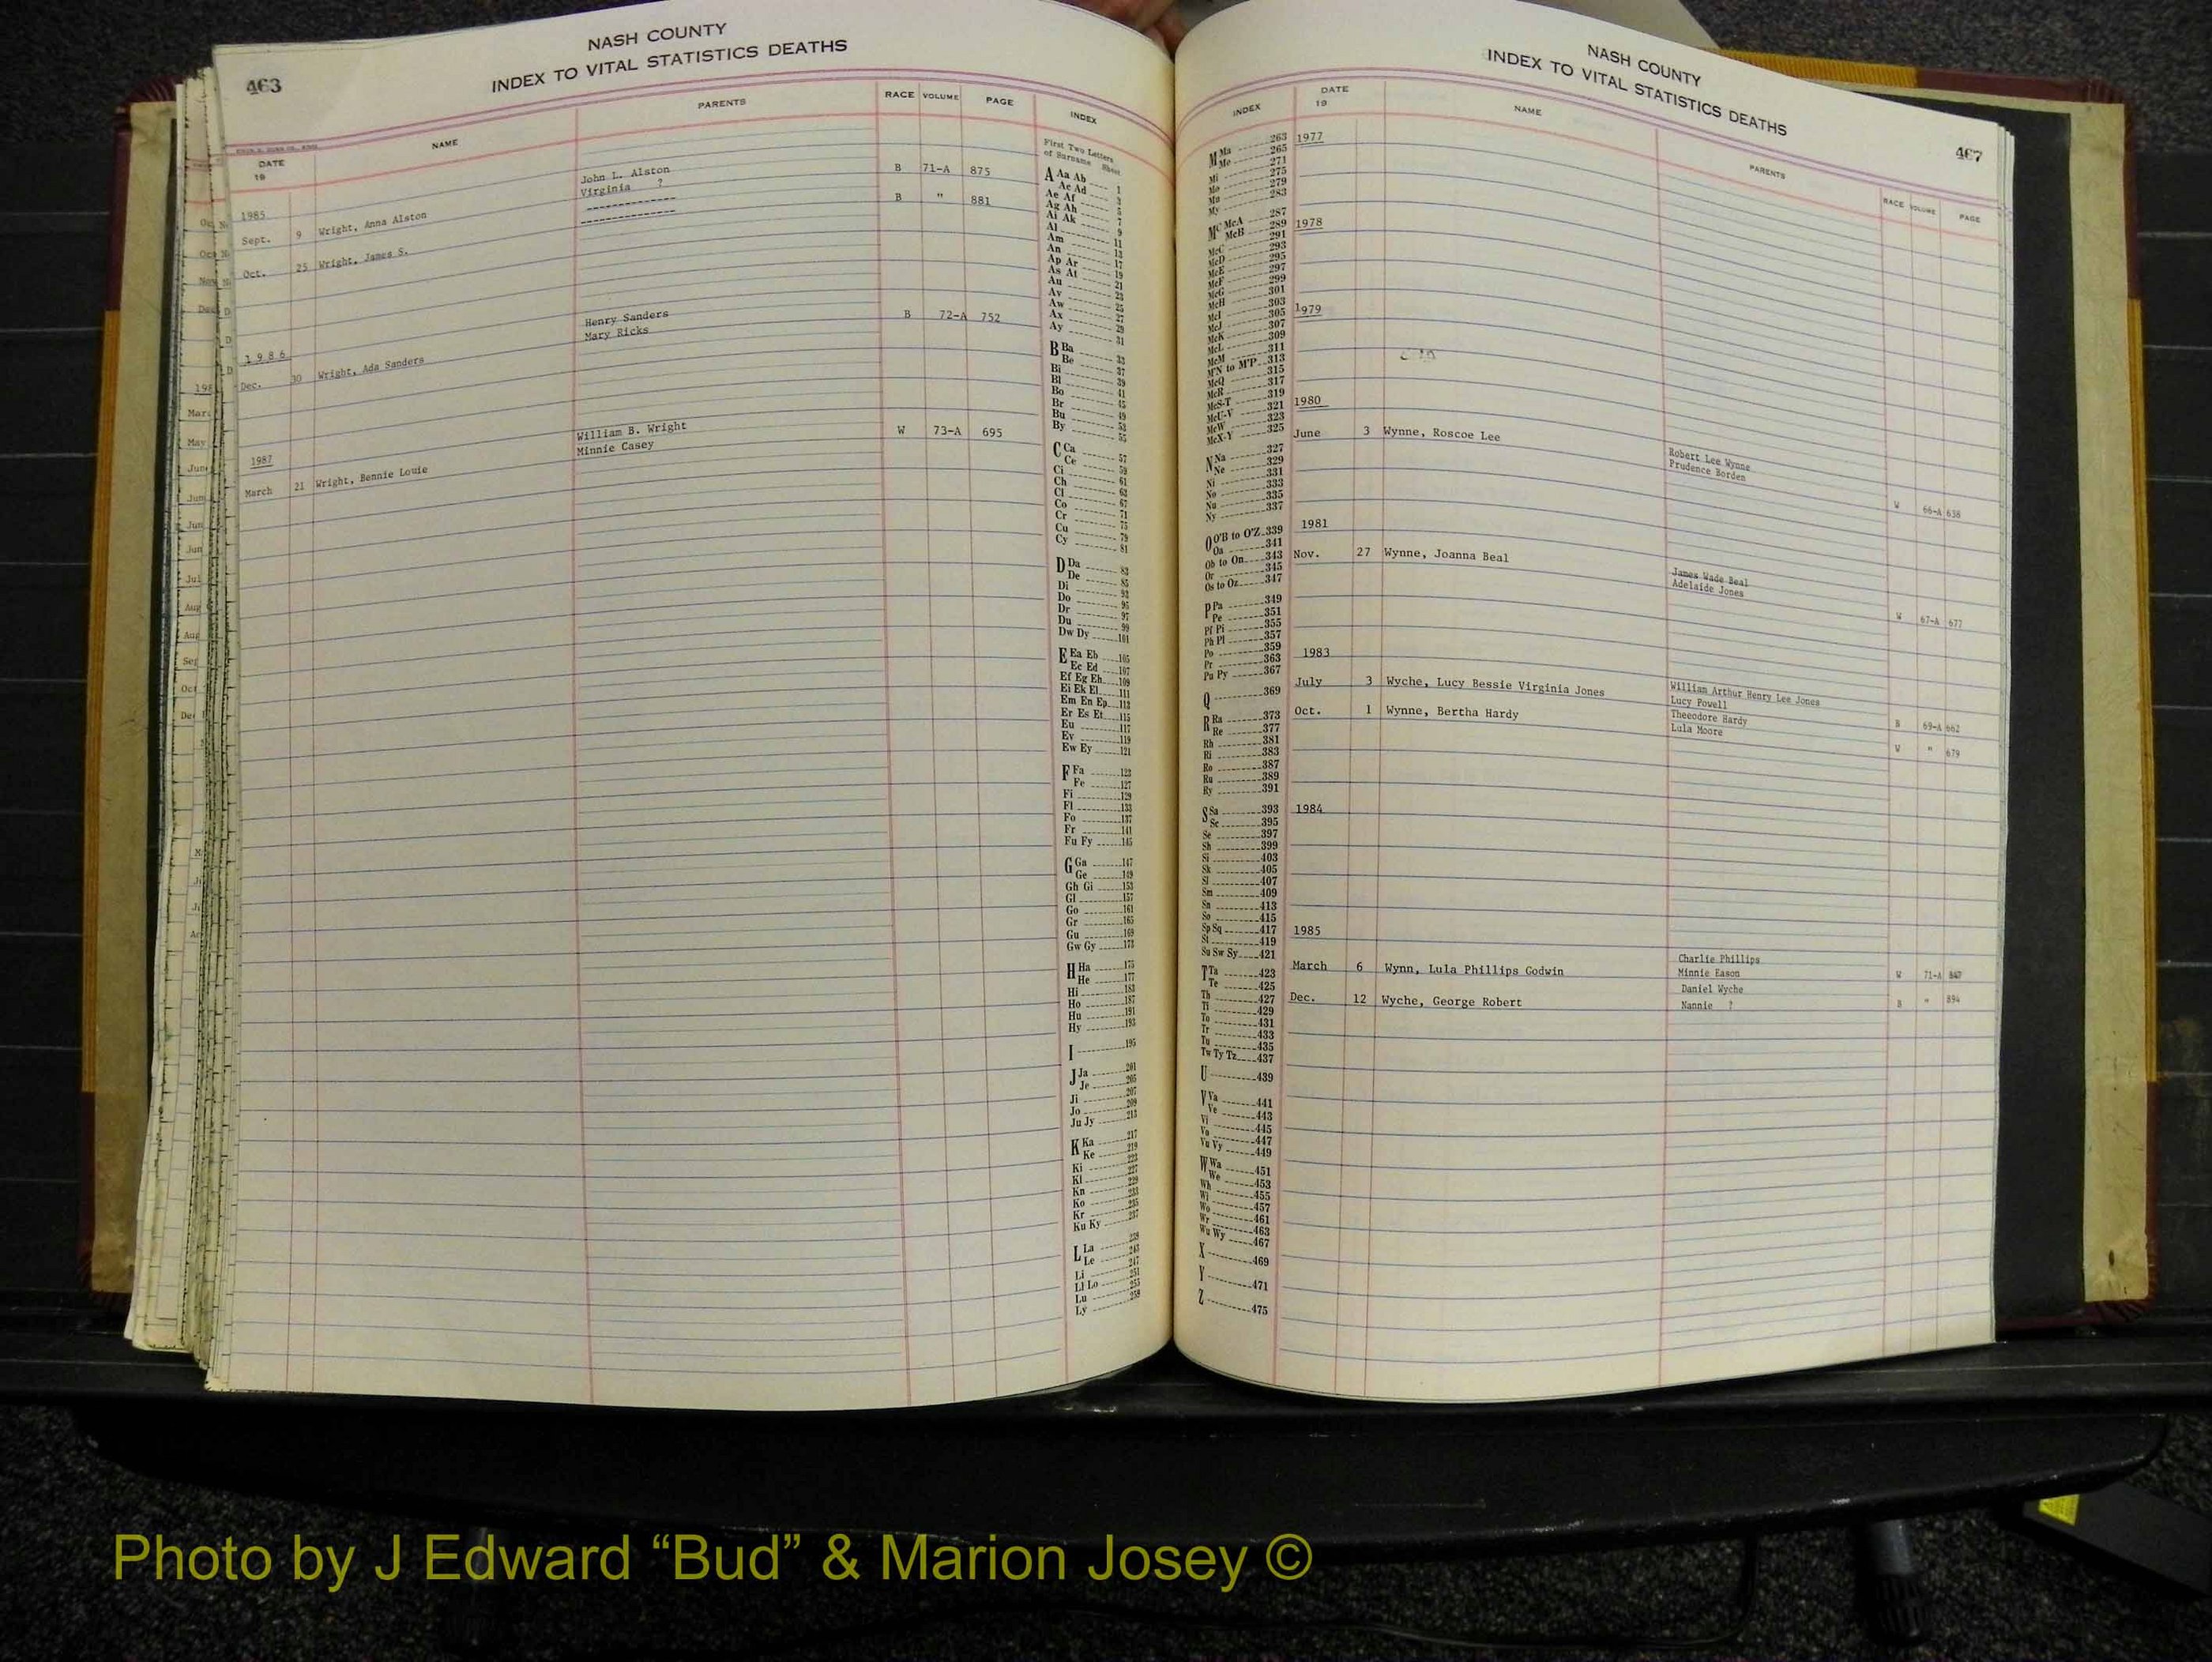 463
NASH COUNTY
INDEX TO VITAL STATISTICS DEATHS
DATE 19 NAME PARENTS RACE VOLUME PAGE INDEX
1985 John L. Alston B 71-A 875
Sept. 9 Wright, Anna Alston Virginia ?
Oct. 25 Wright, James S. -------------- B " 881
--------------
1986 Henry Sanders B 72-A 752
Dec. 30 Wright, Ada Sanders Mary Ricks
1987 William B. Wright W 73-A 695
March 21 Wright, Bennie Louie Minnie Casey
First Two Letters
of Surname Sheet
A Aa Ab 1
Ac Ad 3
Ae Af 5
Ag Ah 7
Ai Ak 9
Al 11
Am 13
An 17
Ap Ar 19
As At 21
Au 23
Av 25
Aw 27
Ax 29
Ay 31
B Ba 33
Be 37
Bi 39
Bl 41
Bo 45
Br 49
Bu 53
By 55
C Ca 57
Ce 59
Ci 61
Ch 63
Cl 67
Co 71
Cr 75
Cu 79
Cy 81
D Da 83
De 85
Di 93
Do 95
Dr 97
Du 99
Dw Dy 101
E Ea Eb 105
Ec Ed 107
Ef Eg Eh 109
Ei Ek El 111
Em En Ep 113
Er Es Et 115
Eu 117
Ev 119
Ew Ey 121
F Fa 123
Fe 127
Fi 129
Fl 133
Fo 137
Fr 141
Fu Fy 145
G Ga 147
Ge 149
Gh Gi 153
Gl 157
Go 161
Gr 165
Gu 169
Gw Gy 173
H Ha 175
He 177
Hi 183
Ho 187
Hu 191
Hy 193
I 195
J Ja 201
Je 205
Ji 207
Jo 209
Ju Jy 213
K Ka 217
Ke 219
Ki 223
Kl 227
Kn 229
Ko 233
Kr 235
Ku Ky 237
L La 239
Le 243
Li 247
Ll Lo 251
Lu 255
Ly 259
NASH COUNTY
INDEX TO VITAL STATISTICS DEATHS
467
INDEX DATE 19 NAME PARENTS RACE VOLUME PAGE
M Ma 263
Me 265
Mi 271
Mo 275
Mu 279
My 283
Mc McA 287
McB 289
McC 291
McD 293
McE 295
McF 297
McG 299
McH 301
McI 303
McJ 305
McK 307
McL 309
McM 311
M'N to M'P 313
McQ 315
McR 317
McS-T 319
McU-V 321
McW 323
McX-Y 325
N Na 327
Ne 329
Ni 331
No 333
Nu 335
Ny 337
O O'B to O'Z 339
Oa 341
Ob to On 343
Or 345
Os to Oz 347
P Pa 349
Pe 351
Pf Pi 355
Ph Pl 357
Po 359
Pr 363
Pu Py 367
Q 369
R Ra 373
Re 377
Rh 381
Ri 383
Ro 387
Ru 389
Ry 391
S Sa 393
Sc 395
Se 397
Sh 399
Si 403
Sk 405
Sl 407
Sm 409
Sn 413
So 415
Sp Sq 417
St 419
Su Sw Sy 421
T Ta 423
Te 425
Th 427
Ti 429
To 431
Tr 433
Tu 435
Tw Ty Tz 437
U 439
V Va 441
Ve 443
Vi 445
Vo 447
Vu Vy 449
W Wa 451
We 453
Wh 455
Wi 457
Wo 461
Wr 463
Wu Wy 467
X 469
Y 471
Z 475
1977
1978
1979
1980
June 3 Wynne, Roscoe Lee Robert Lee Wynne
Prudence Borden W 66-A 638
1981
Nov. 27 Wynne, Joanna Beal James Wade Beal
Adelaide Jones W 67-A 677
1983
July 3 Wyche, Lucy Bessie Virginia Jones William Arthur Henry Lee Jones
Lucy Powell B 69-A 662
Oct. 1 Wynne, Bertha Hardy Theeodore Hardy
Lula Moore W " 679
1984
1985
Charlie Phillips
March 6 Wynn, Lula Phillips Godwin Minnie Eason W 71-A 847
Daniel Wyche
Dec. 12 Wyche, George Robert Nannie ? B " 894
Photo by J Edward “Bud” & Marion Josey ©